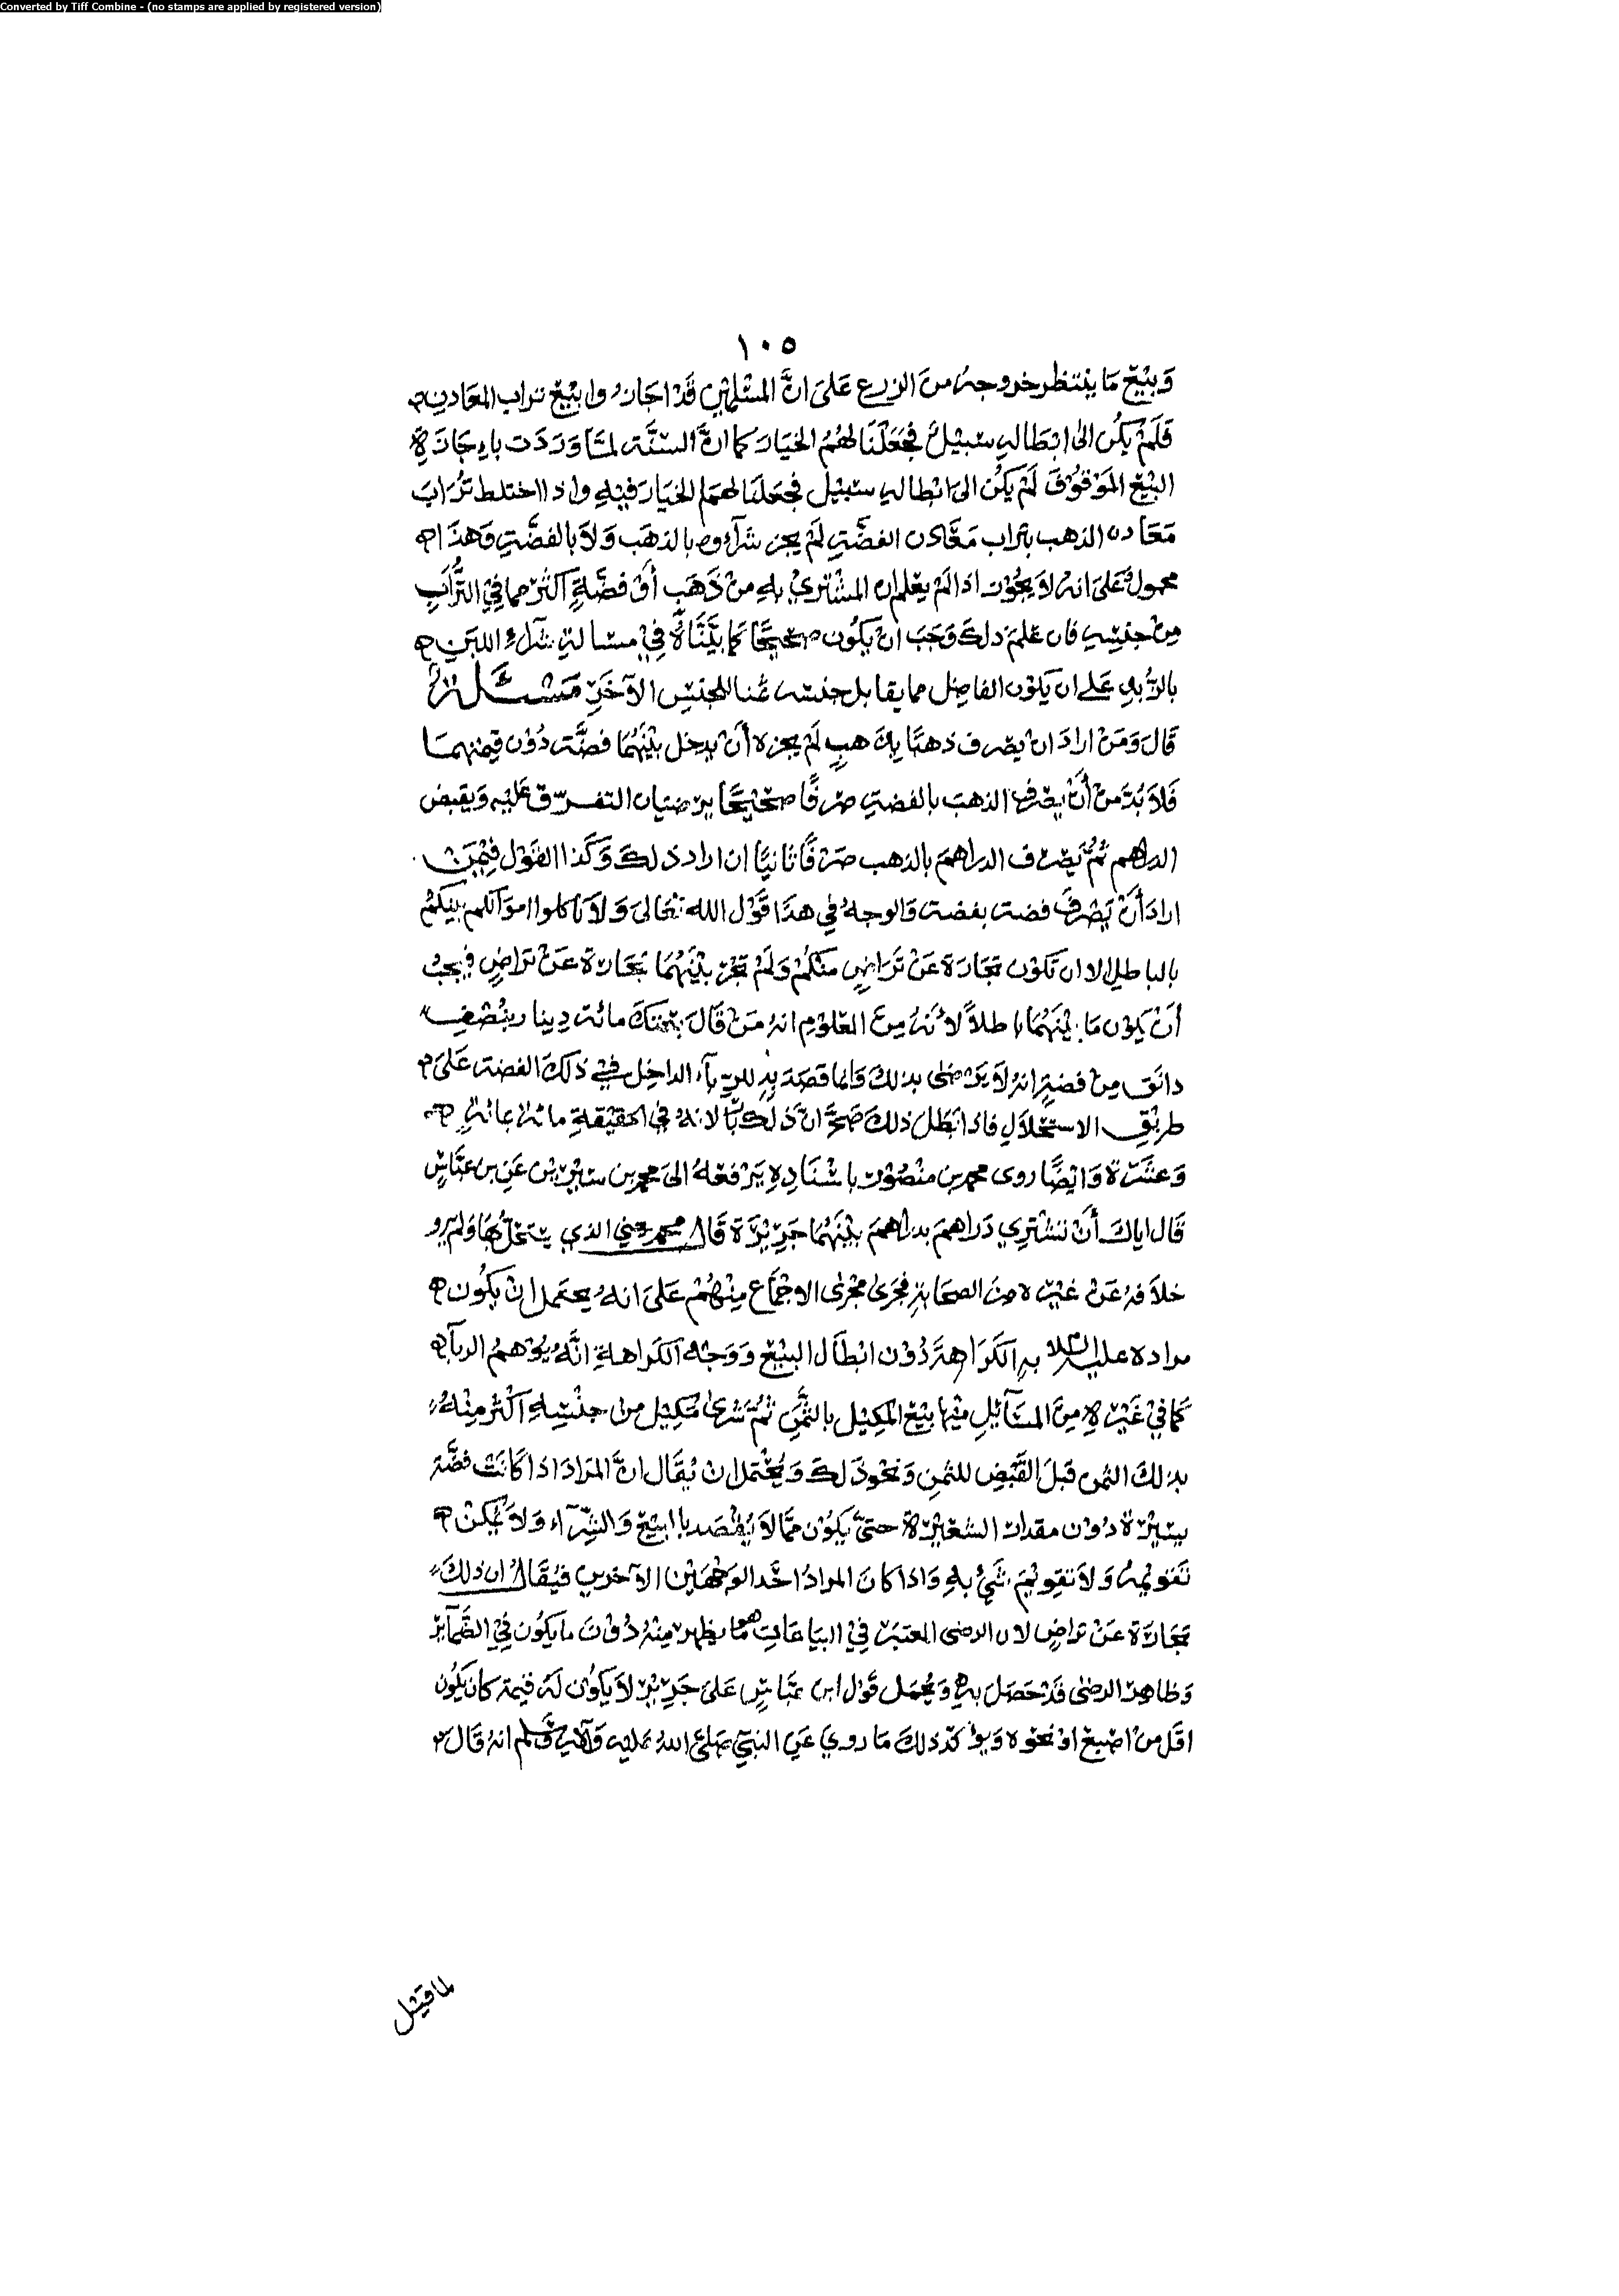 Converted by Tiff Combine - (no stamps are applied by registered version)
١٠٥
وَبَيْعَ مَا ينتظر خروجه منَ الزرع عَلىَ انَّ المسْلمِيْن قَدْ اجَازُوا بَيْعَ تراب المعَادنِ
فَلَمْ يكُن الىٰ ابْطَالهِ سَبيْلٌ فجَعَلْنَا لهُمُ الخيَارَ كما انَّ السّنَّة لمَّا وَرَدَت باِجَازَةِ
البَيْع الموْقوُف لَمْ يَكنُ الىَ ابْطالهِ سَبيْل فجعَلنَا لهمَا الخيَارَ فيْهِ واذا اختلط ترُابَ
مَعَادن الذهب بتراب مَعَادن الفضَّةِ لَمْ يجز شرآؤه بالذهَب وَلاَ بالفضَّةِ وَهذَا
محمولٌ عَلىَ انهُ لاَ يجُوْز اذا لم يعْلم ان المشتريْ بهِ منْ ذَهَب أوْ فضَّةٍ اكثر مما فِيْ التُّرابِ
منْ جنسِهِ فان عَلمَ ذلكَ وَجَبَ انْ يكُون صحيْحًا كما بيَّنَّاهُ فِيْ مسالة شرآءِ اللبَنِ
بالزّبدِ عَلى ان يكوْن الفاضِل مما يقابل جنسه ثمنا للجنسِ الآخَرِ مَسْئَلة
قالَ وَمَنْ ارادَ انْ يصْرف ذهبًا بِذَهبٍ لَمْ يجزه أنْ يدخل بَيْنَهُمَا فضَّة دُوْن قيمتهمَا
فَلاَ بُدَّ منْ أنْ يصْرف الذهبَ بالفضةِ صَرْفًا صَحيْحًا يرضيَان التفرّق عَليْهِ وَيقبض
الدراهم ثمُّ يَصْرف الدراهمَ بالذهب صَرْفًا ثانيًا ان اراد ذلكَ وَكذا القوْل فيْمَنْ
ارادَ أنْ يَصْرفَ فضة بفضة وَالوجهُ في هذا قَوْل الله تعَالىَ وَلاَ تاكلوا اموَالكم بينكمْ
بالباطلِ الا ان تكوْن تجَارَة عَنْ تَرَاضٍ منكُمْ وَلَمْ تجْر بَيْنَهُمَا تجَارة عَنْ تراضٍ فيجبُ
أنْ يكوْن مَا بيْنَهُمَا باطلاً لأنهُ منَ المعْلوُم انهُ مَنْ قَالَ بعْتكَ مائة دينار بنُصْفِ
دانق مِنْ فضةٍ انهُ لاَ يرْضىٰ بذلكَ وَانما قصَدَ بهِ للرّبآء الداخِل فيْ ذلكَ الفضة عَلىَ
طريْقِ الاستحْلاَلِ فاذا بَطَل ذلكَ صَحَّ انَّ ذلكَ ربًا لانهُ في الحَقيْقَةِ مائة بمائةٍ
وَعشرَة وَايْضًا روى محمد بن منْصُوْر باسْنَادِهِ يَرْفعُهُ الىَ محمد بن سِيْرِيْن عَنِ بن عبَّاسٍ
قَال اياكَ أنْ تشْترِي دَراهمَ بدراهمَ بيْنَهُمَا جَرِيْرَة قَالَ محمد يعني الذي يستحَلُّ بهَا وَلم يرو
خلاَفهُ عَنْ غيْره منَ الصحَابةِ فجَرَىٰ مجْرىٰ الاجْمَاع منْهُمْ عَلىَ انهُ يحتمل انْ يكُون
مراده عليه السلام بهِ الكَرَاهةَ دُوْن ابْطَال البيْع وَوَجْهُ الكَرَاهةِ انَّهُ يوُهمُ الربآ
كمَا فِيْ غيْرِهِ مِنَ المسَآئلِ منْهَا بيْعَ المكِيْل بالثمَّنِ ثمُّ شرىٰ مَكِيْل من جنْسِهِ اكْثر مِنْهُ
بذلكَ الثمن قبلَ القَبْضِ للثمنِ وَنحْوذلكَ وَيحْتمل انْ يُقَال انَّ المرَادَ اذا كَانَتْ فضَّة
يسِيْرة دُوْن مقدار الشعِيْرَة حتىَّ يكوُن ممَّا لاَ يُقْصَد بالبيْع وَالشِّرَآء وَلاَ يمكنْ
تقوِيمهُ وَلاَ تقوِيْم شيْء بهِ وَاذا كانَ المرادُ احَد الوَجْهيْن الآخريْنِ فيُقَالُ ان ذلكَ
تجَارَة عَنْ تراضٍ لان الرضى المعتبَر فِيْ البيَاعَاتِ هُوَ مَا يظهر منْهُ دُوْنَ ما يكوُن فيْ الضّمَآئر
وَظاهر الرضىٰ قَدْ حَصَلَ بهِ وَيحُمَل قَوْل ابن عبَّاسٍ عَلىَ جَرِيْرَةٍ لاَ يكوْن لهَ قيمة كان يكوُن
اقل منْ اصْبع اوْ نحْوه وَيؤكّد ذلكَ مَا روي عَنِ النبيّ صَلىَّ اللهُ عليه وَآله وَسَلم انهُ قَالَ
لما قيْل